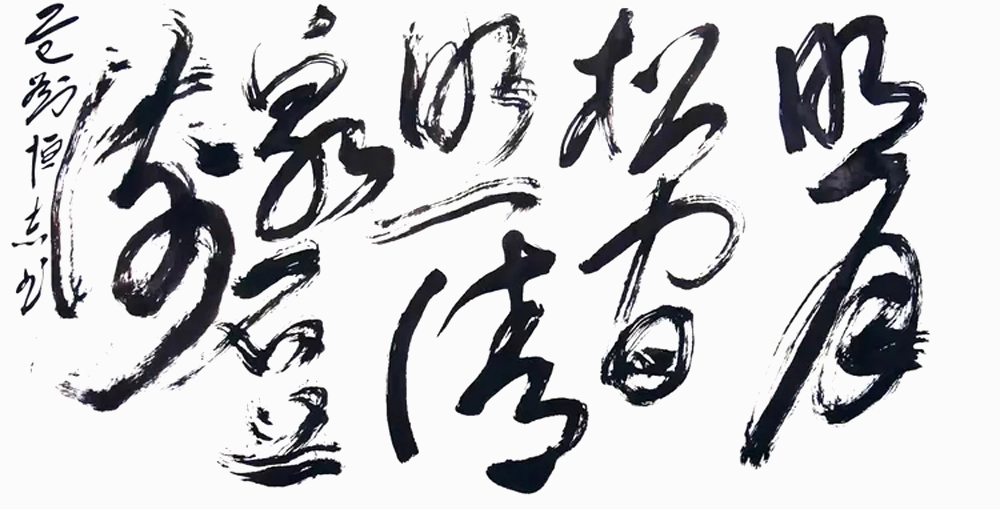 明月
松間
照清
泉石上
流
劉恒志书